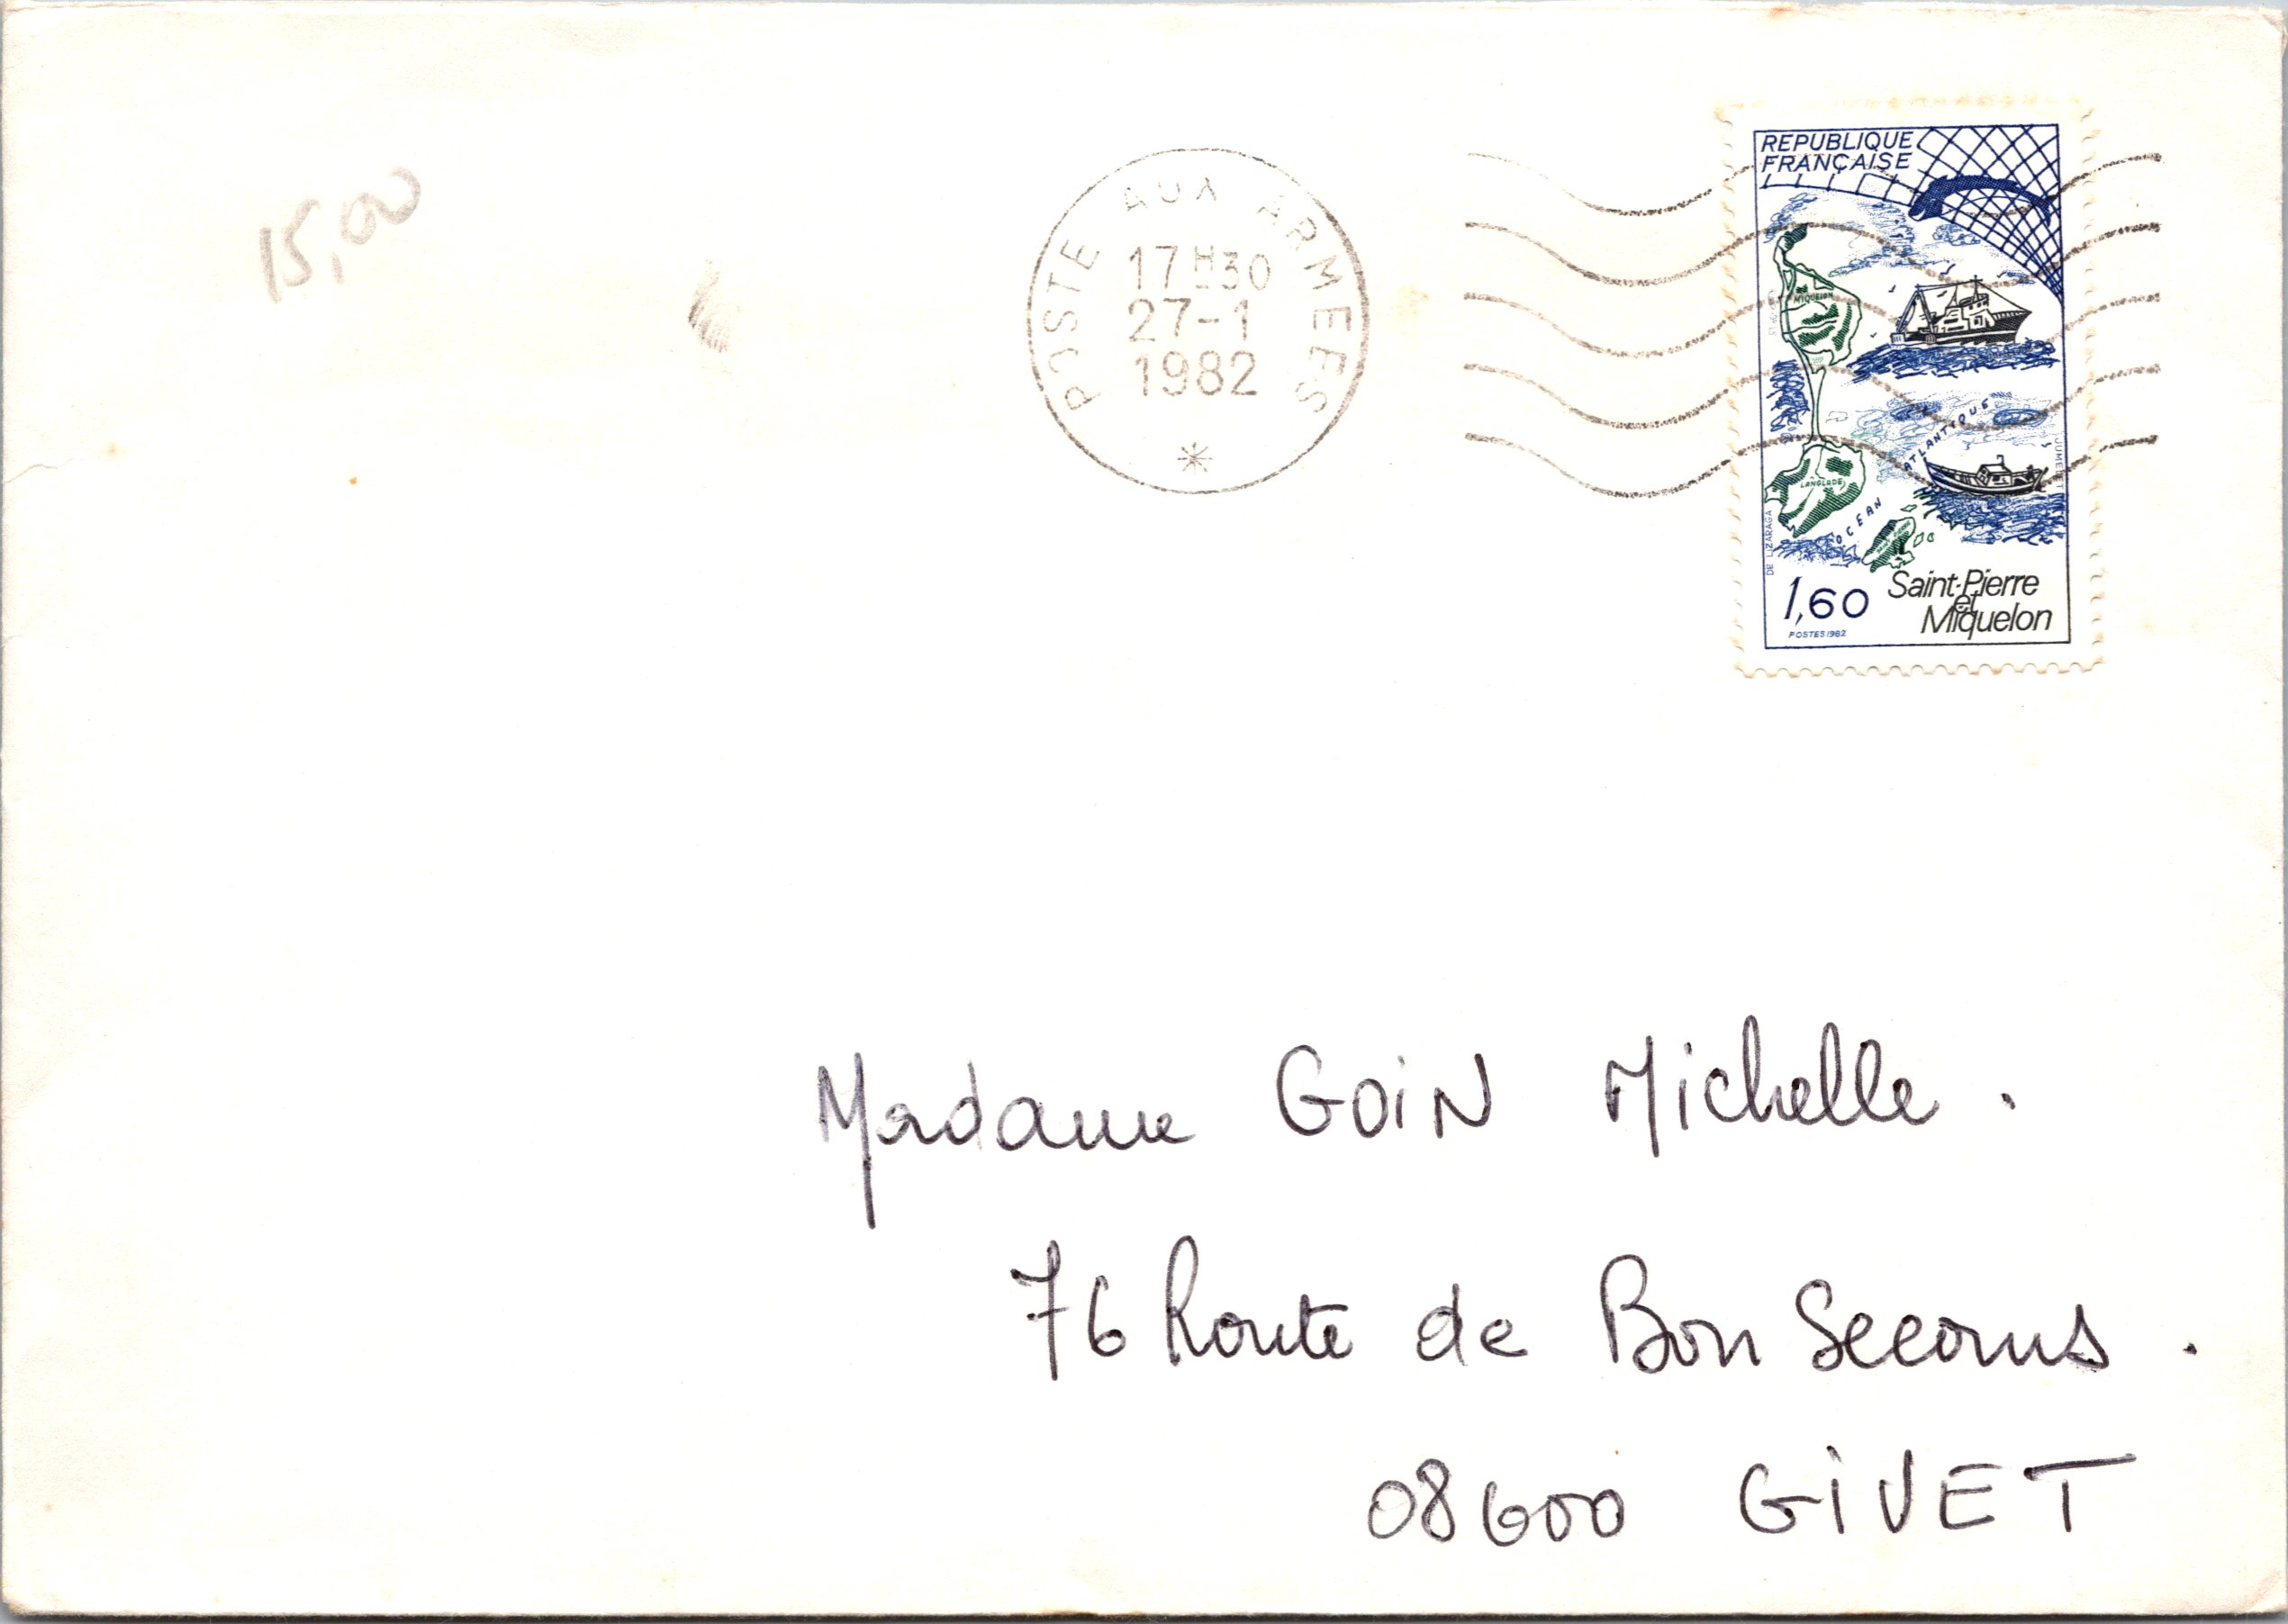 15,00
POSTE AUX ARMEES
17H30
27-1
1982
REPUBLIQUE
FRANÇAISE
MIQUELON
LANGLADE
OCEAN ATLANTIQUE
DE LIZARAGA
JUMELET
1,60
POSTES 1982
Saint-Pierre
et
Miquelon
Madame GOIN Michelle .
76 Route de Bon Secours .
08600 GIVET